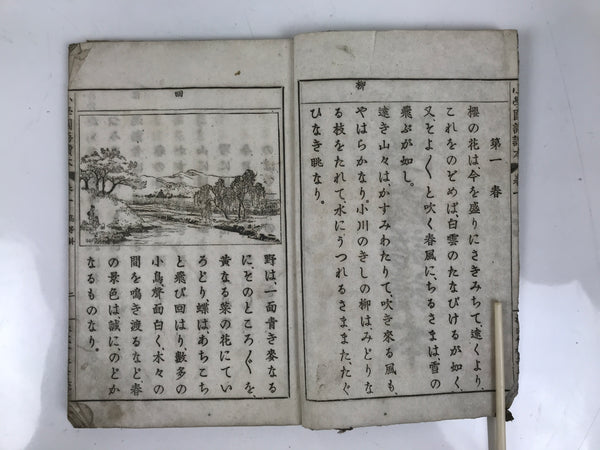 柳
第一 春
櫻の花は、今を盛りにさきみちて、遠くより、
これをのぞめば、白雲のたなびけるが如く、
又、そよ〳〵と吹く春風に、ちるさまは、雪の
飛ぶが如し。
遠き山々は、かすみわたりて、吹き來る風も、
やはらかなり。小川のきしの柳は、みどりな
る枝をたれて、水にうつれるさま、また、たぐ
ひなき眺なり。
田
野は、一面靑き姿なる
に、そのところ〴〵を、
黄なる菜の花にてい
ろどり、蝶はあちこち
と飛び回はり、數多の
小鳥、聲面白く、木々の
間を鳴き渡るなど、春
の景色は、誠に、のどか
なるものなり。